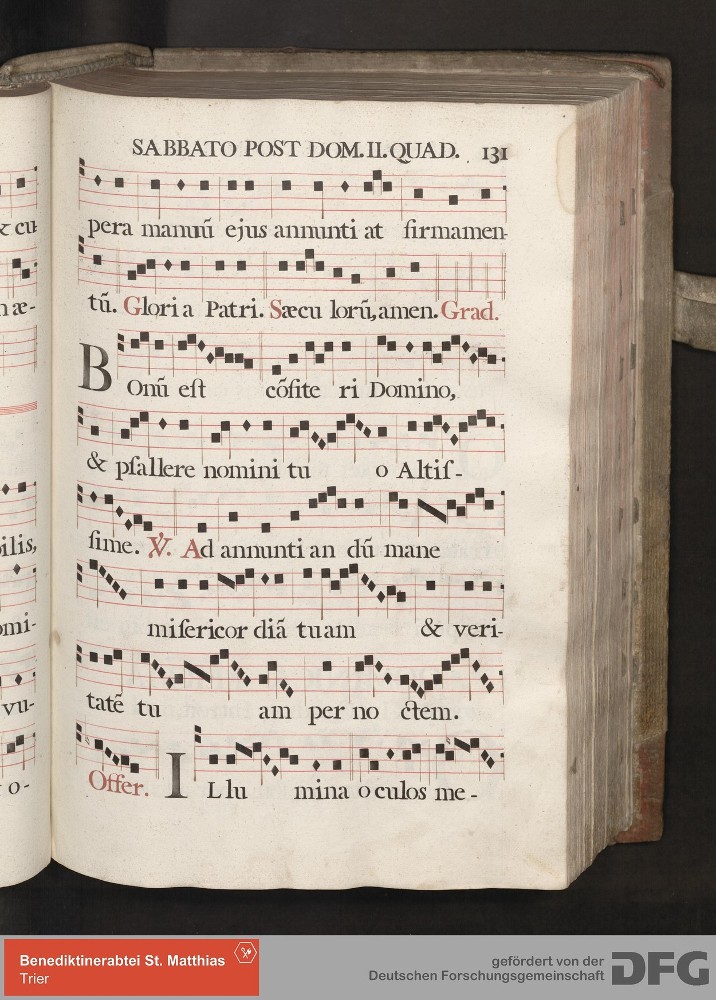 SABBATO POST DOM. II. QUAD. 131
pera manuū ejus annunti at firmamen-
tū. Glori a Patri. Sæcu lorū, amen. Grad.
BOnū est cōfite ri Domino,
& psallere nomini tu o Altis-
sime. ℣. Ad annunti an dū mane
misericor diā tuam & veri-
tatē tu am per no ctem.
Offer. ILlu mina oculos me-
& cu
n æ-
bilis,
omi-
vu-
o-
Benediktinerabtei St. Matthias
Trier
gefördert von der
Deutschen Forschungsgemeinschaft DFG